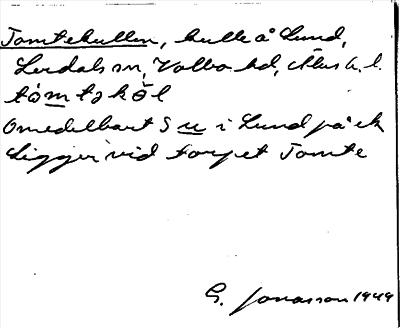 Tomtekullen, kulle å Lund,
Lerdals sn, Valbo hd, Älvs b. l.
tòmtəkǒl
Omedelbart S u i Lund på ek
Ligger vid torpet Tomte
G. Jonasson 1949